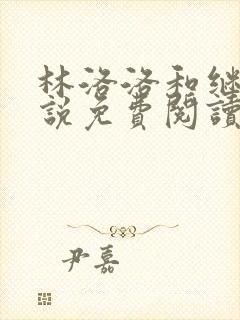 林洛洛和继
說免費閱讀
尹嘉